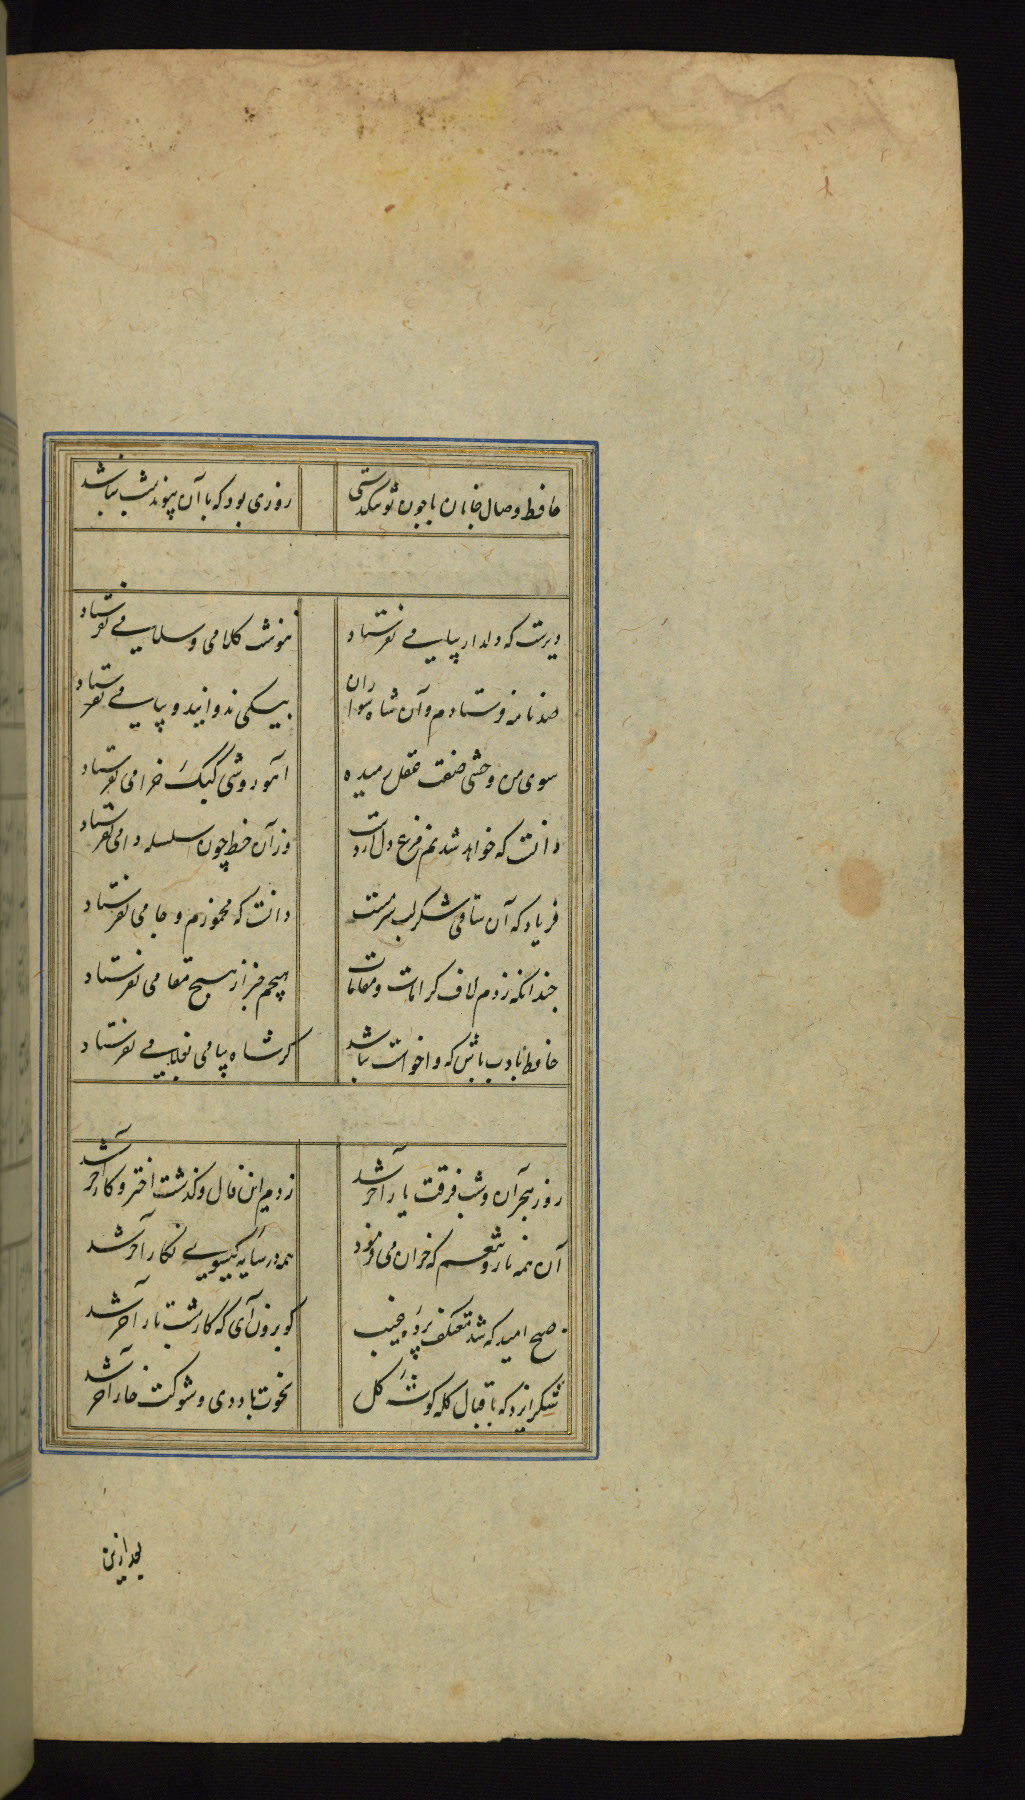 حافظ وصال جانان با چون تو تنگدستی روزی بود که با آن پیوند شب نباشد
دیرست که دلدار پیامی نفرستاد ننوشت کلامی و سلامی نفرستاد
صد نامه فرستادم و آن شاه سواران پیکی ندوانید و پیامی نفرستاد
سوی من وحشی صفت عقل رمیده آهو روشی کبک خرامی نفرستاد
دانست که خواهد شدنم مرغ دل از دست وز آن خط چون سلسله دامی نفرستاد
فریاد که آن ساقی شکر لب سرمست دانست که مخمورم و جامی نفرستاد
چندانکه زدم لاف کرامات و مقامات هیچم خبر از هیچ مقامی نفرستاد
حافظ بادب باش که واخواست نباشد گر شاه پیامی بغلامی نفرستاد
روز هجران و شب فرقت یار آخر شد زدم این فال و گذشت اختر و کار آخر شد
آن همه ناز و تنعم که خزان می فرمود همه در سایه گیسوی نگار آخر شد
صبح امید که شد معتکف پرده غیب گو برون آی که کار شب تار آخر شد
شکر ایزد که باقبال کله گوشه گل نخوت باد دی و شوکت خار آخر شد
بعد ازین